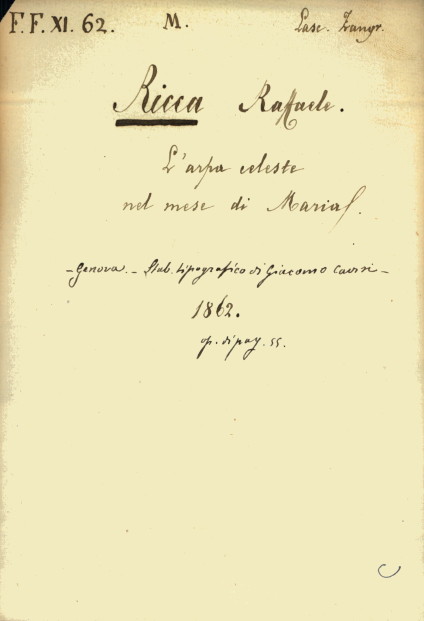 F. F. XI. 62. M. Lasc. Zangr.
Ricca Raffaele.
L'arpa celeste
nel mese di Maria.
- Genova. - Stab. tipografico di Giacomo Caorsi -
1862.
op. di pag. 55.